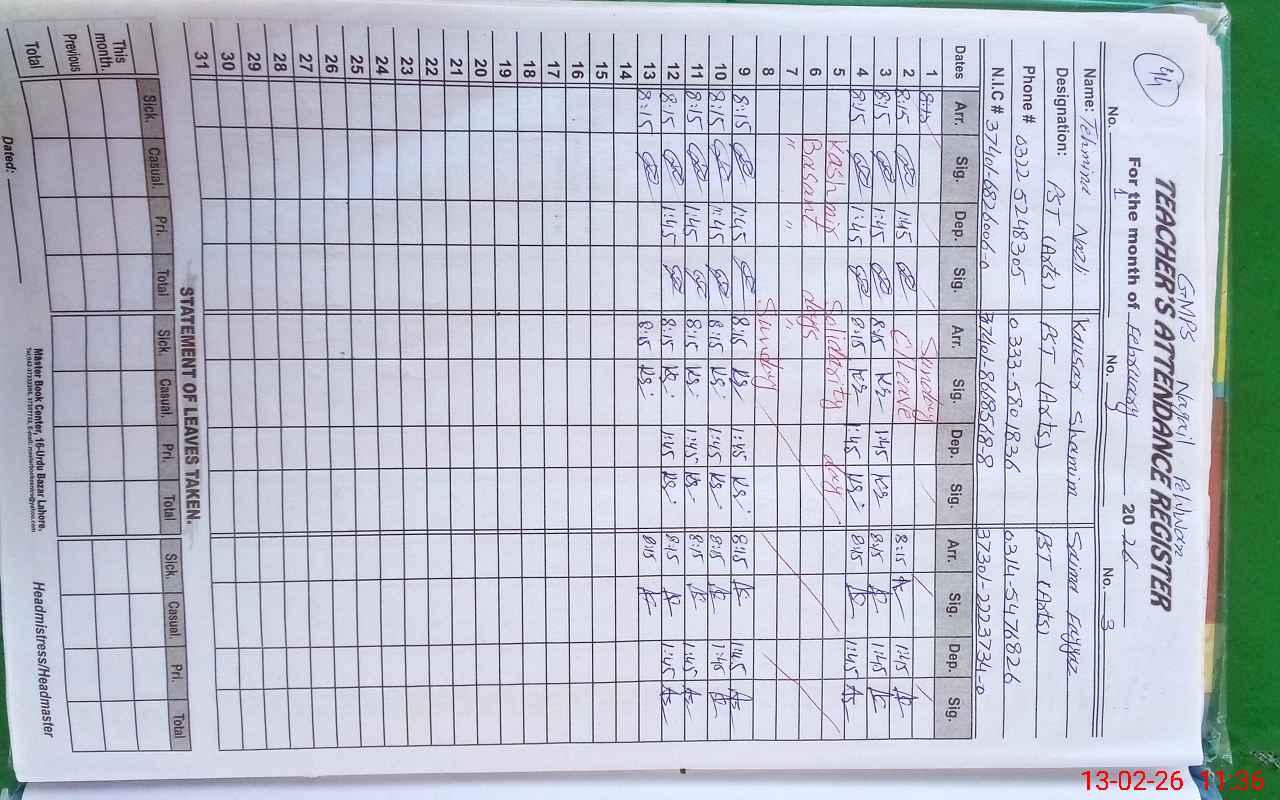 44
GMPS
TEACHER'S ATTENDANCE REGISTER
For the month of February 2026
No. 1 No. 2 No. 3
Name: Tehmina Nazli Kausar Shamim Saima Fayyaz
Designation: PST (Arts) PST (Arts) PST (Arts)
Phone # 0322-5248305 0333-5801836 0314-5476826
N.I.C # 37401-6826006-0 37401-8668568-8 37301-2223734-0
Dates Arr. Sig. Dep. Sig. Arr. Sig. Dep. Sig. Arr. Sig. Dep. Sig.
1 8:15 Sunday
2 8:15 1:45 C/Leave 8:15 1:45
3 8:15 1:45 8:15 KS 1:45 KS 8:15 1:45
4 8:15 1:45 8:15 KS 1:45 KS 8:15 1:45
5 Kashmir Solidarity day
6 Basant days
7 " " "
8 Sunday
9 8:15 1:45 8:15 KS 1:45 KS 8:15 1:45
10 8:15 1:45 8:15 KS 1:45 KS 8:15 1:45
11 8:15 1:45 8:15 KS 1:45 KS 8:15 1:45
12 8:15 1:45 8:15 KS 1:45 KS 8:15 1:45
13 8:15 8:15 KS 8:15
14
15
16
17
18
19
20
21
22
23
24
25
26
27
28
29
30
31
STATEMENT OF LEAVES TAKEN.
Sick. Casual. Pri. Total Sick. Casual. Pri. Total Sick. Casual. Pri. Total
This month.
Previous
Total
Master Book Center, 16-Urdu Bazar Lahore.
Dated: Headmistress/Headmaster
13-02-26 11:36